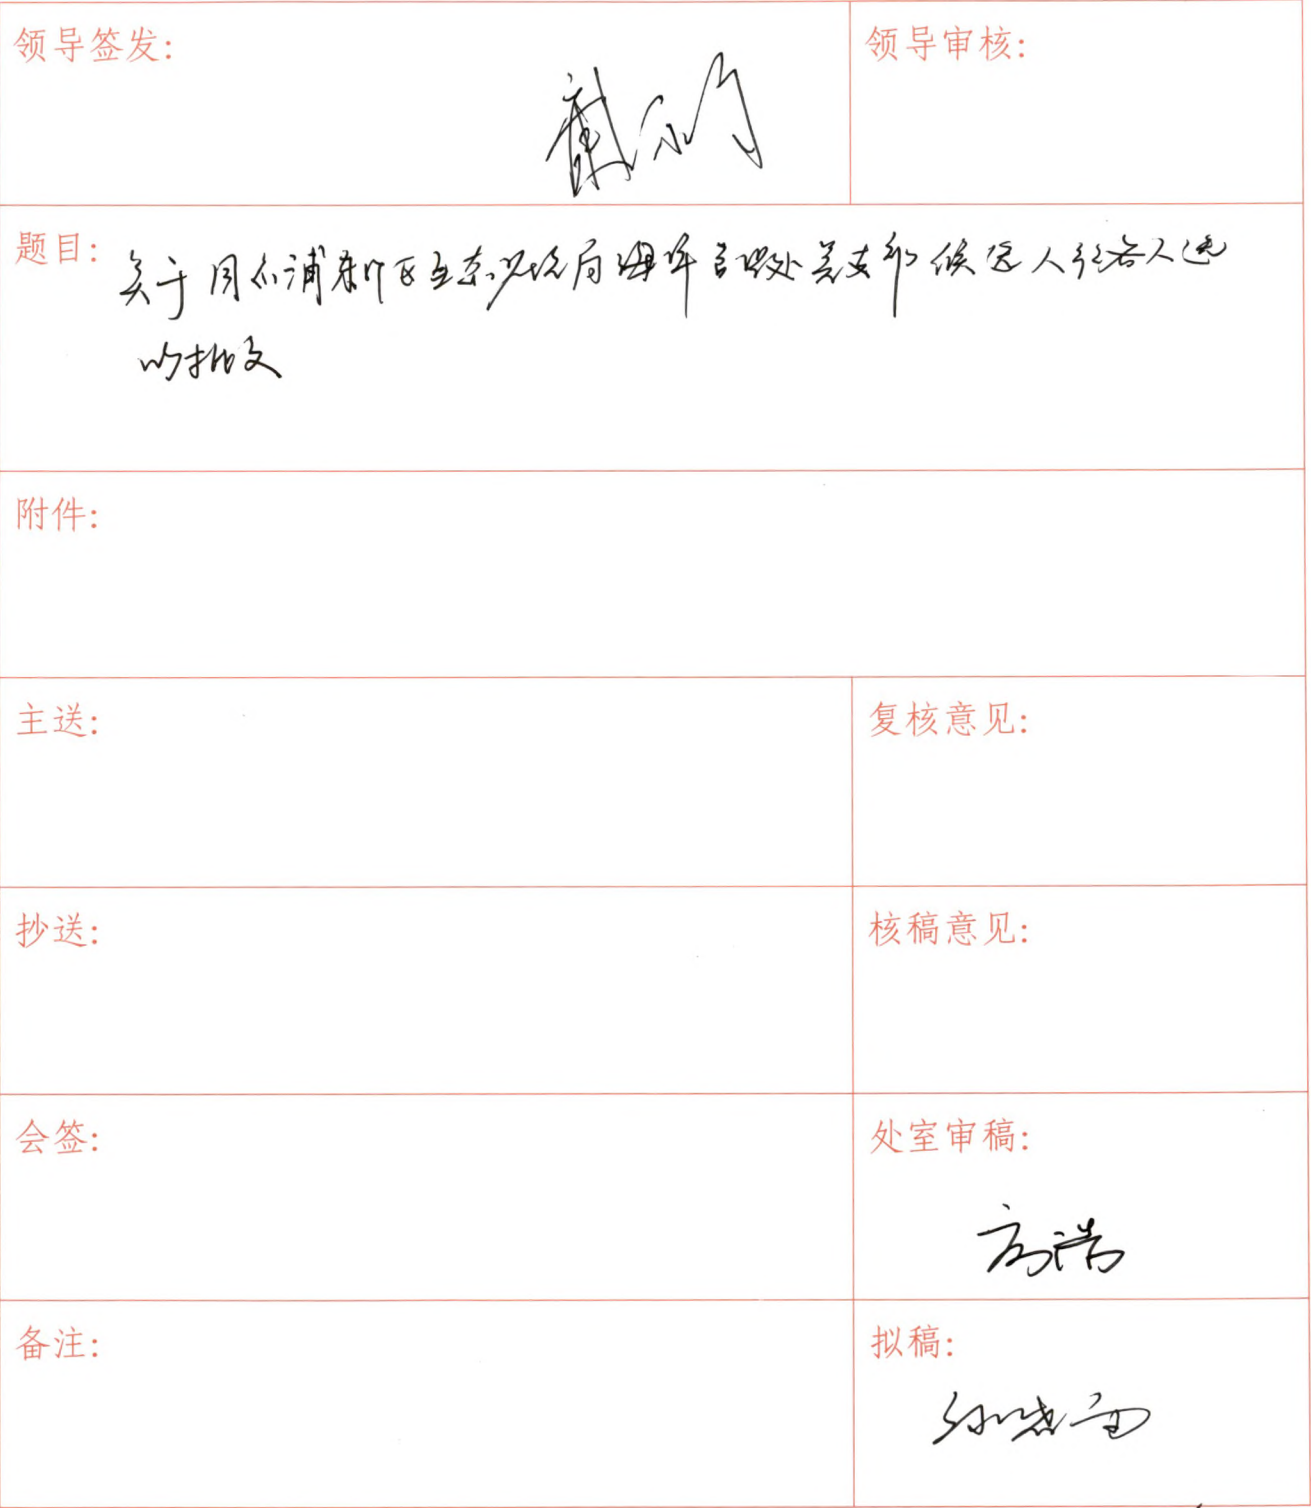 领导签发:
领导审核:
题目: 关于同意浦东新区生态环境局 管理处党支部候选人 人选
的批文
附件:
主送:
复核意见:
抄送:
核稿意见:
会签:
处室审稿:
高
备注:
拟稿:
孙晓